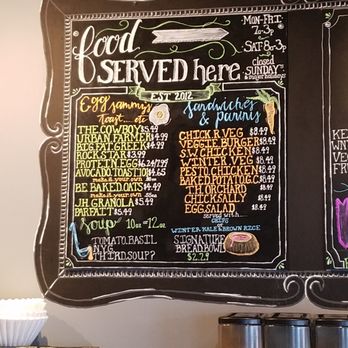 food
SERVED here
MON-FRI
7a-3p
SAT 8a-3p
closed
SUNDAY
& major holidays
EST 2012
Egg sammys
Toast... etc
THE COWBOY $5.49
URBAN FARMER $4.99
BIG FAT GREEK $4.99
ROCKSTAR $3.99
PROTEIN EGG $6.24/7.99
AVOCADO TOAST
make it your own
BE BAKED.OATS $4.49
make it your own
J.H. GRANOLA $5.49
PARFAIT $5.49
Soup 10oz=12oz
TOMATO.BASIL
THIRD.SOUP?
Sandwiches
& paninis
CHICK R VEG $8.49
VEGGIE BURGER $8.49
SW. CHICKEN $8.49
WINTER VEG $8.49
PESTO.CHICKEN $8.49
BAKED.POTATO $8.49
TH.ORCHARD $8.49
CHICK.SALLY $8.49
EGG.SALAD $8.49
served with...
CHIPS
or
WINTER KALE & BROWN RICE
SIGNATURE
BREAD BOWL
$2.29